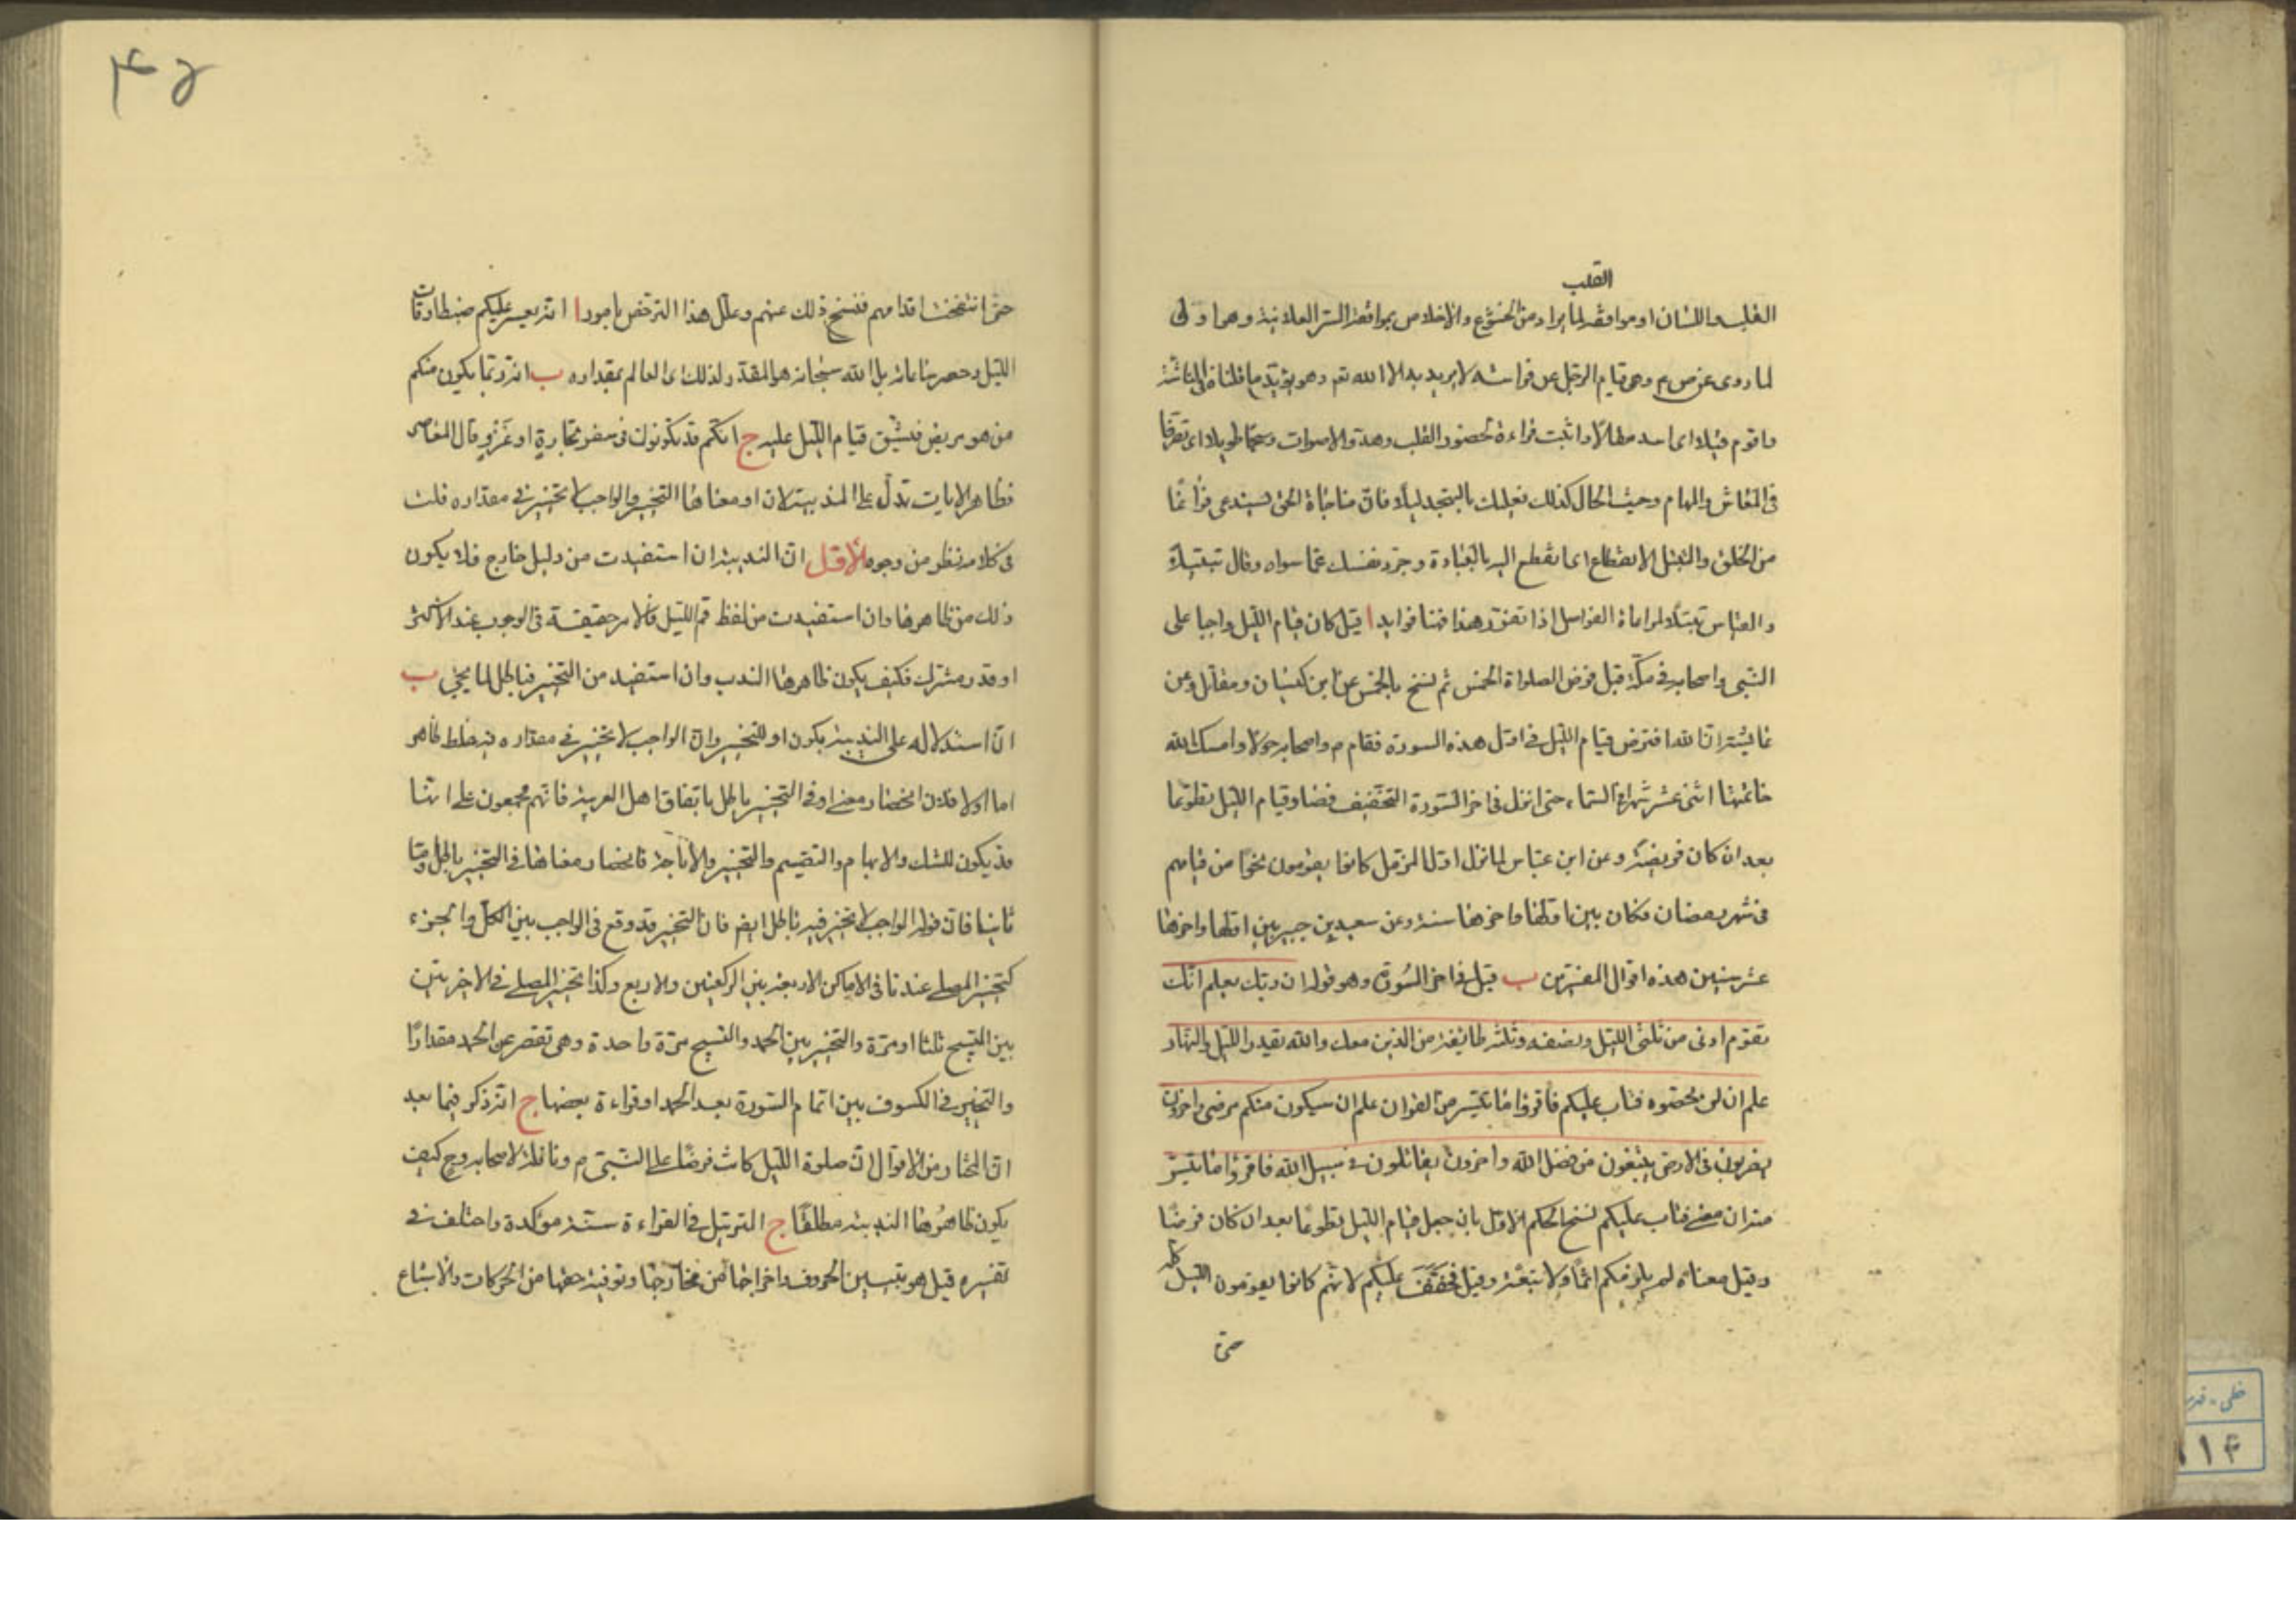 القلب
القلب واللسان او موافقة لما يراد من الخشوع والاخلاص بموافقة السر العلانية وهما وى
لما روى عن ص م وهى قيام الرجل عن فراشه لا يريد به الا الله تعم وهو يؤيد ما قلناه فى الناشئة
واقوم قيلا اى اسد مقالا واثبت قراءة لحضور القلب وهدو الاصوات وسبحا طويلا اى تصرفا
فى المعاش والمهام وحيث الحال كذلك فعليك بالتهجد ليلا فان مناجاة الحق يستدعى فراغا
من الخلق والتبتل الانقطاع اى انقطع اليه بالعبادة وجرد نفسك عما سواه وقال تبتيلا
والقياس تبتلا لمراعاة الفواصل اذا تقرر هذا فهنا فوايد ا قيل كان قيام الليل واجبا على
النبى واصحابه فى مكة قبل فرض الصلواة الخمس ثم نسخ بالخمس عن ابن كيسان ومقاتل وعن
عايشة ان الله افترض قيام الليل فى اول هذه السورة فقام م واصحابه حولا وامسك الله
خاتمتها اثنى عشر شهرا فى السماء حتى انزل فى اخر السورة التخفيف فصار قيام الليل تطوعا
بعد ان كان فريضة وعن ابن عباس لما نزل اول المزمل كانوا يقومون نحوا من قيامهم
فى شهر رمضان فكان بين اولها واخرها سنة وعن سعيد بن جبير بين اولها واخرها
عشر سنين هذه اقوال المفسرين ب قيل فى اخر السورة وهو قوله ان ربك يعلم انك
تقوم ادنى من ثلثى الليل ونصفه وثلثه وطائفة من الذين معك والله يقدر الليل والنهار
علم ان لن تحصوه فتاب عليكم فاقرؤا ما تيسر من القران علم ان سيكون منكم مرضى واخرون
يضربون فى الارض يبتغون من فضل الله واخرون يقاتلون فى سبيل الله فاقرؤا ما تيسر
منه ان معنى فتاب عليكم نسخ الحكم الاول بان جعل قيام الليل تطوعا بعد ان كان فرضا
وقيل معناه لم يلزمكم اثما ولا تبعة وقيل فخفف عليكم لانهم كانوا يقومون الليل كله
حتى
۴۵
حتى انتفخت اقدامهم فنسخ ذلك عنهم وعلل هذا الترخص بامور ا انه يعسر عليكم ضبط اوقات
الليل وحصر ساعاته بل الله سبحانه هو المقدر لذلك اى العالم بمقداره ب انه ربما يكون منكم
من هو مريض فيشق قيام الليل عليه ج انكم قد تكونون فى سفر تجارة او غزو قال المعاصر
فظاهر الايات تدل على الندبية لان او معناها التخيير والواجب لا تخيير فى مقداره قلت
فى كلامه نظر من وجوه الاول ان الندبية ان استفيدت من دليل خارج فلا يكون
ذلك من ظاهرها وان استفيدت من لفظ قم الليل فالامر حقيقة فى الوجوب عند الاكثر
او قدر مشترك فكيف يكون ظاهرها الندب وان استفيد من التخيير فباطل لما يجئ ب
ان استدلاله على الندبية بكون او للتخيير وان الواجب لا تخيير فى مقداره فيه غلط ظاهر
اما اولا فلان انحصار معنى او فى التخيير باطل باتفاق اهل العربية فانهم مجمعون على انها
قد يكون للشك والابهام والتقسيم والتخيير والاباحة فانحصار معناها فى التخيير باطل واما
ثانيا فان قوله الواجب لا تخيير فيه باطل ايض فان التخيير قد وقع فى الواجب بين الكل والجزء
كتخيير المصلى عندنا فى الاماكن الاربعة بين الركعتين والاربع وكذا تخيير المصلى فى الاخريتين
بين التسبيح ثلثا او مرة والتخيير بين الحمد والتسبيح مرة واحدة وهى تقصر عن الحمد مقدارا
والتخيير فى الكسوف بين اتمام السورة بعد الحمد او قراءة بعضها ج انه ذكر فيما بعد
ان المختار من الاقوال ان صلوة الليل كانت فرضا على النبى م ونافلة لاصحابه وح كيف
يكون ظاهرها الندبية مطلقا ج الترتيل فى القراءة سنة مؤكدة واختلف فى
تفسيره قيل هو تبيين الحروف واخراجها من مخارجها وتوفية حقها من الحركات والاشباع